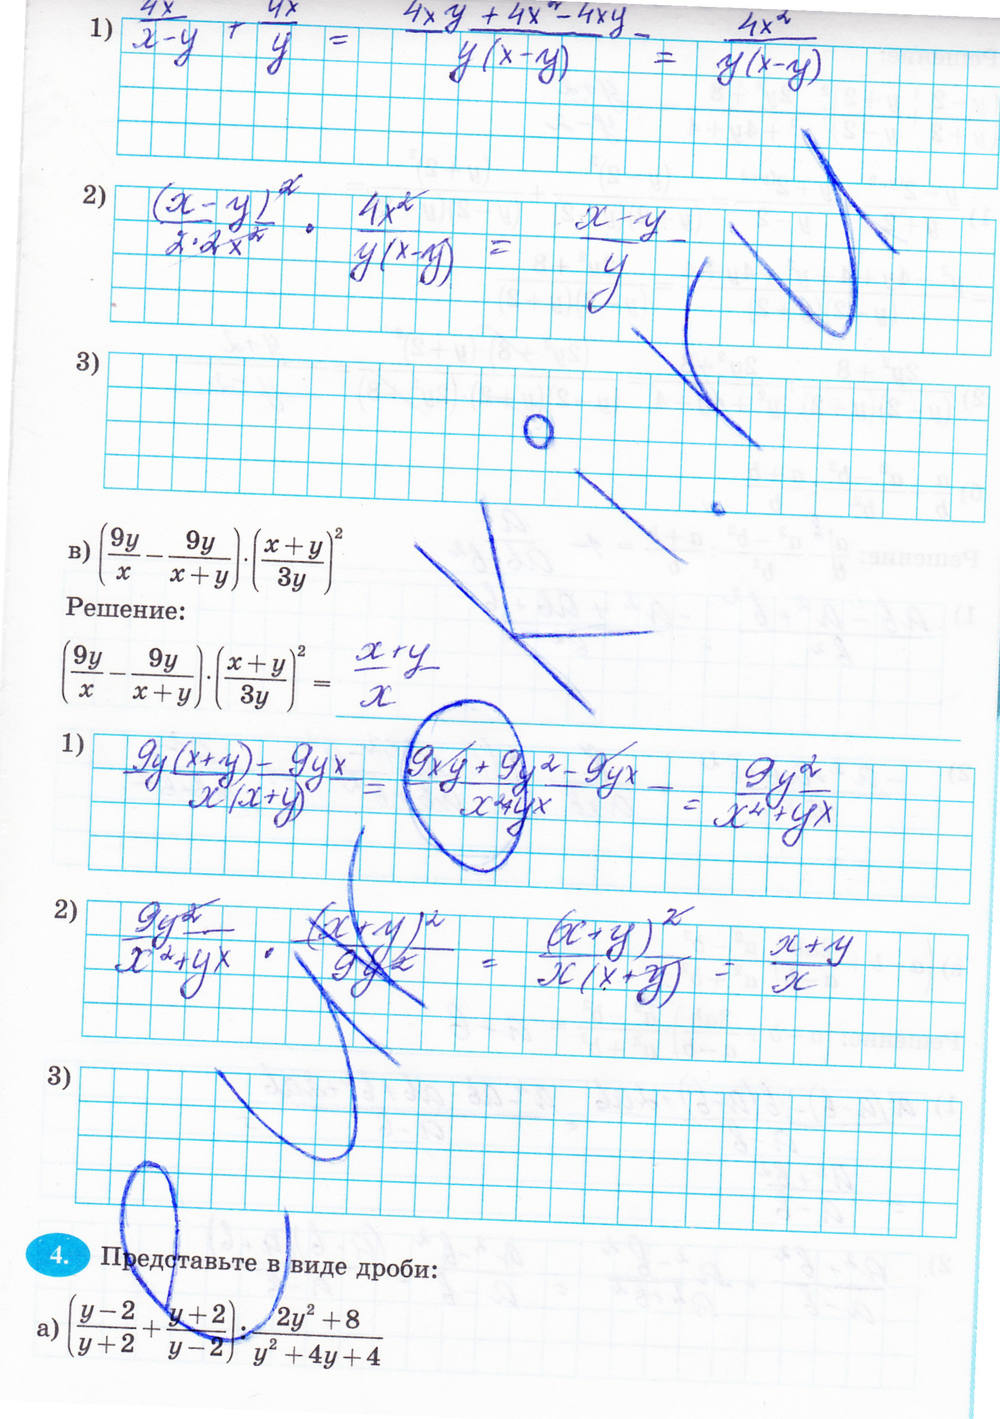 1) 4x/(x-y) + 4x/y = (4xy + 4x² - 4xy)/(y(x-y)) = 4x²/(y(x-y))
2) (x-y)²/(2·2x²) · 4x²/(y(x-y)) = (x-y)/y
3)
в) (9y/x - 9y/(x+y)) · ((x+y)/3y)²
Решение:
(9y/x - 9y/(x+y)) · ((x+y)/3y)² = (x+y)/x
1) (9y(x+y) - 9yx)/(x(x+y)) = (9xy + 9y² - 9yx)/(x²+yx) = 9y²/(x²+yx)
2) 9y²/(x²+yx) · (x+y)²/9y² = (x+y)²/(x(x+y)) = (x+y)/x
3)
4. Представьте в виде дроби:
а) ((y-2)/(y+2) + (y+2)/(y-2)) · (2y²+8)/(y²+4y+4)